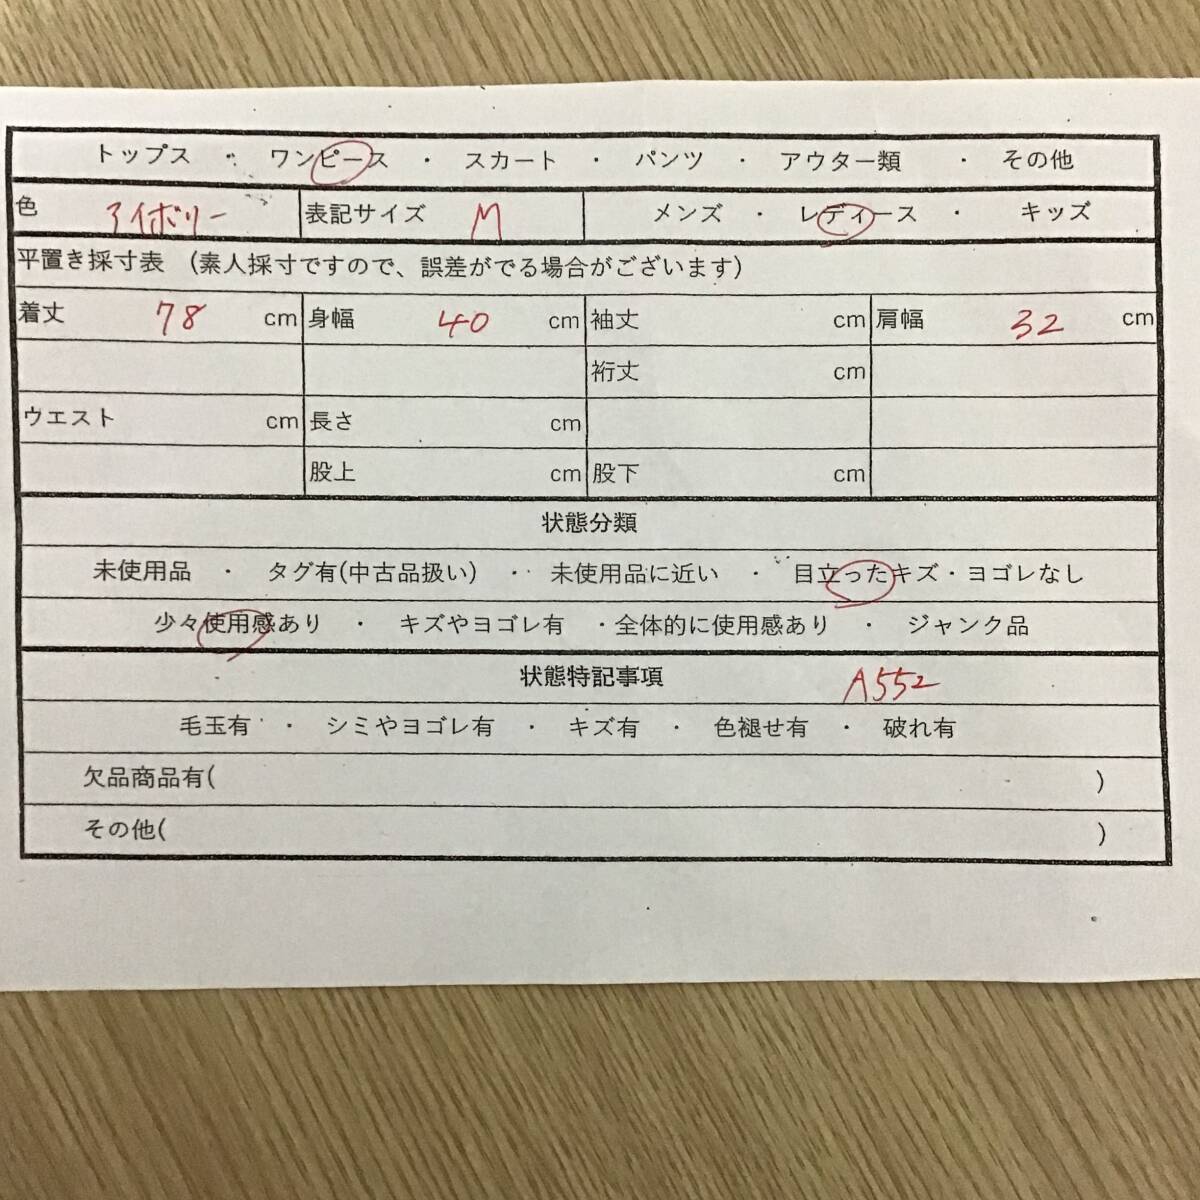 トップス ・ ワンピース ・ スカート ・ パンツ ・ アウター類 ・ その他
色 アイボリー 表記サイズ M メンズ ・ レディース ・ キッズ
平置き採寸表 (素人採寸ですので、誤差がでる場合がございます)
着丈 78 cm 身幅 40 cm 袖丈 cm 肩幅 32 cm
裄丈 cm
ウエスト cm 長さ cm
股上 cm 股下 cm
状態分類
未使用品 ・ タグ有(中古品扱い) ・ 未使用品に近い ・ 目立ったキズ・ヨゴレなし
少々使用感あり ・ キズやヨゴレ有 ・全体的に使用感あり ・ ジャンク品
状態特記事項 A552
毛玉有 ・ シミやヨゴレ有 ・ キズ有 ・ 色褪せ有 ・ 破れ有
欠品商品有( )
その他( )